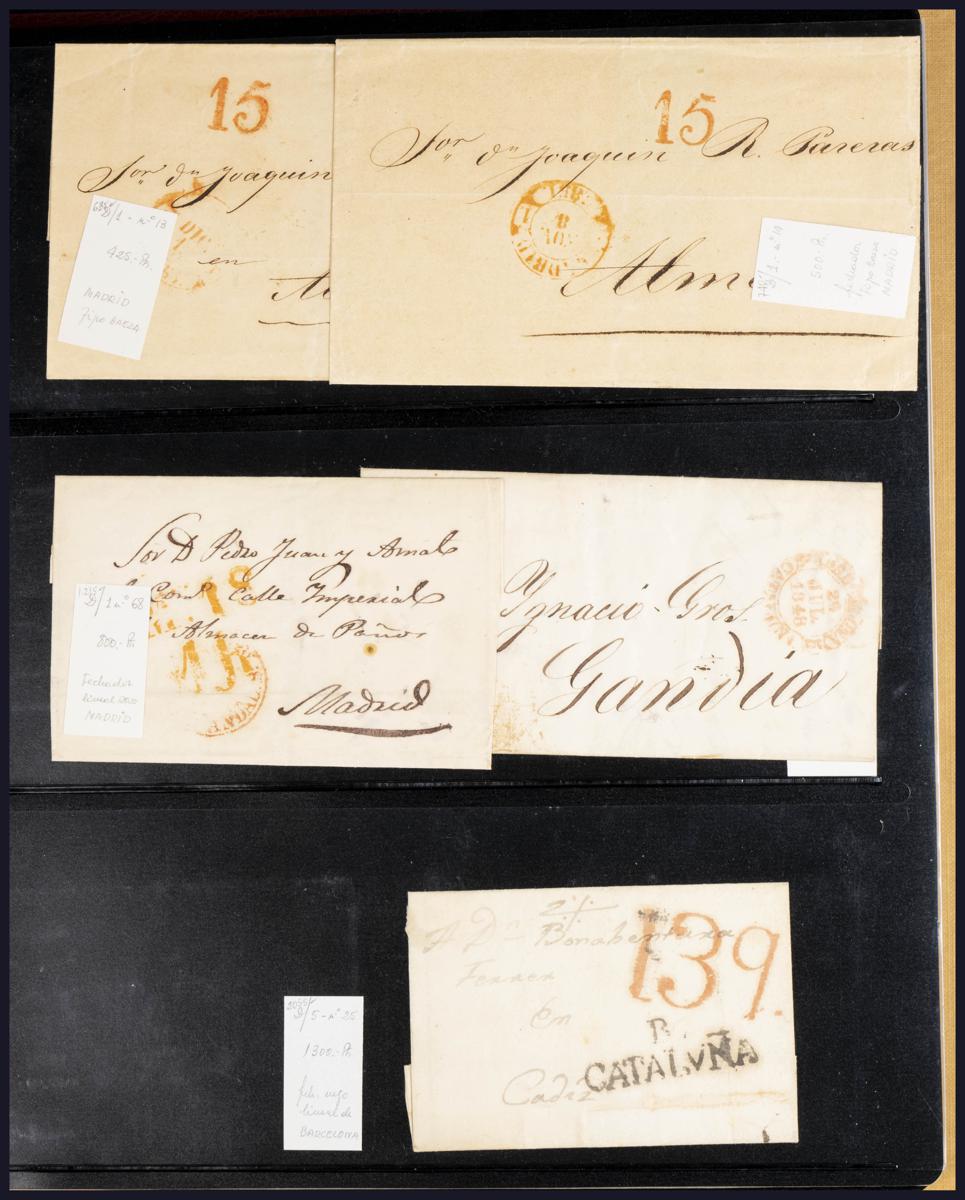 15
Sor. Dn Joaquin
en
DIC
1
D/1 - nº 13
425.- Pts.
MADRID
Tipo BAEZA
15
Sor. Dn Joaquin R. Pareras
8
NOV
Alm
D/1.- nº 19
500.- Pts.
fechador
Tipo Baeza
MADRID
Sor D Pedro Juan y Amat
Come Calle Imperial
Almacen de Paños
Madrid
ANDAL
D/1 nº 68
800.- Pts.
Fechador
lineal
MADRID
Ygnacio Gros
Gandía
24
JUL
1848
A Dn Bonabentura
Ferrer
en
Cadiz
139
B
CATALVÑA
D/5 - nº 25
1300.- Pts.
fech. rojo
lineal de
BARCELONA